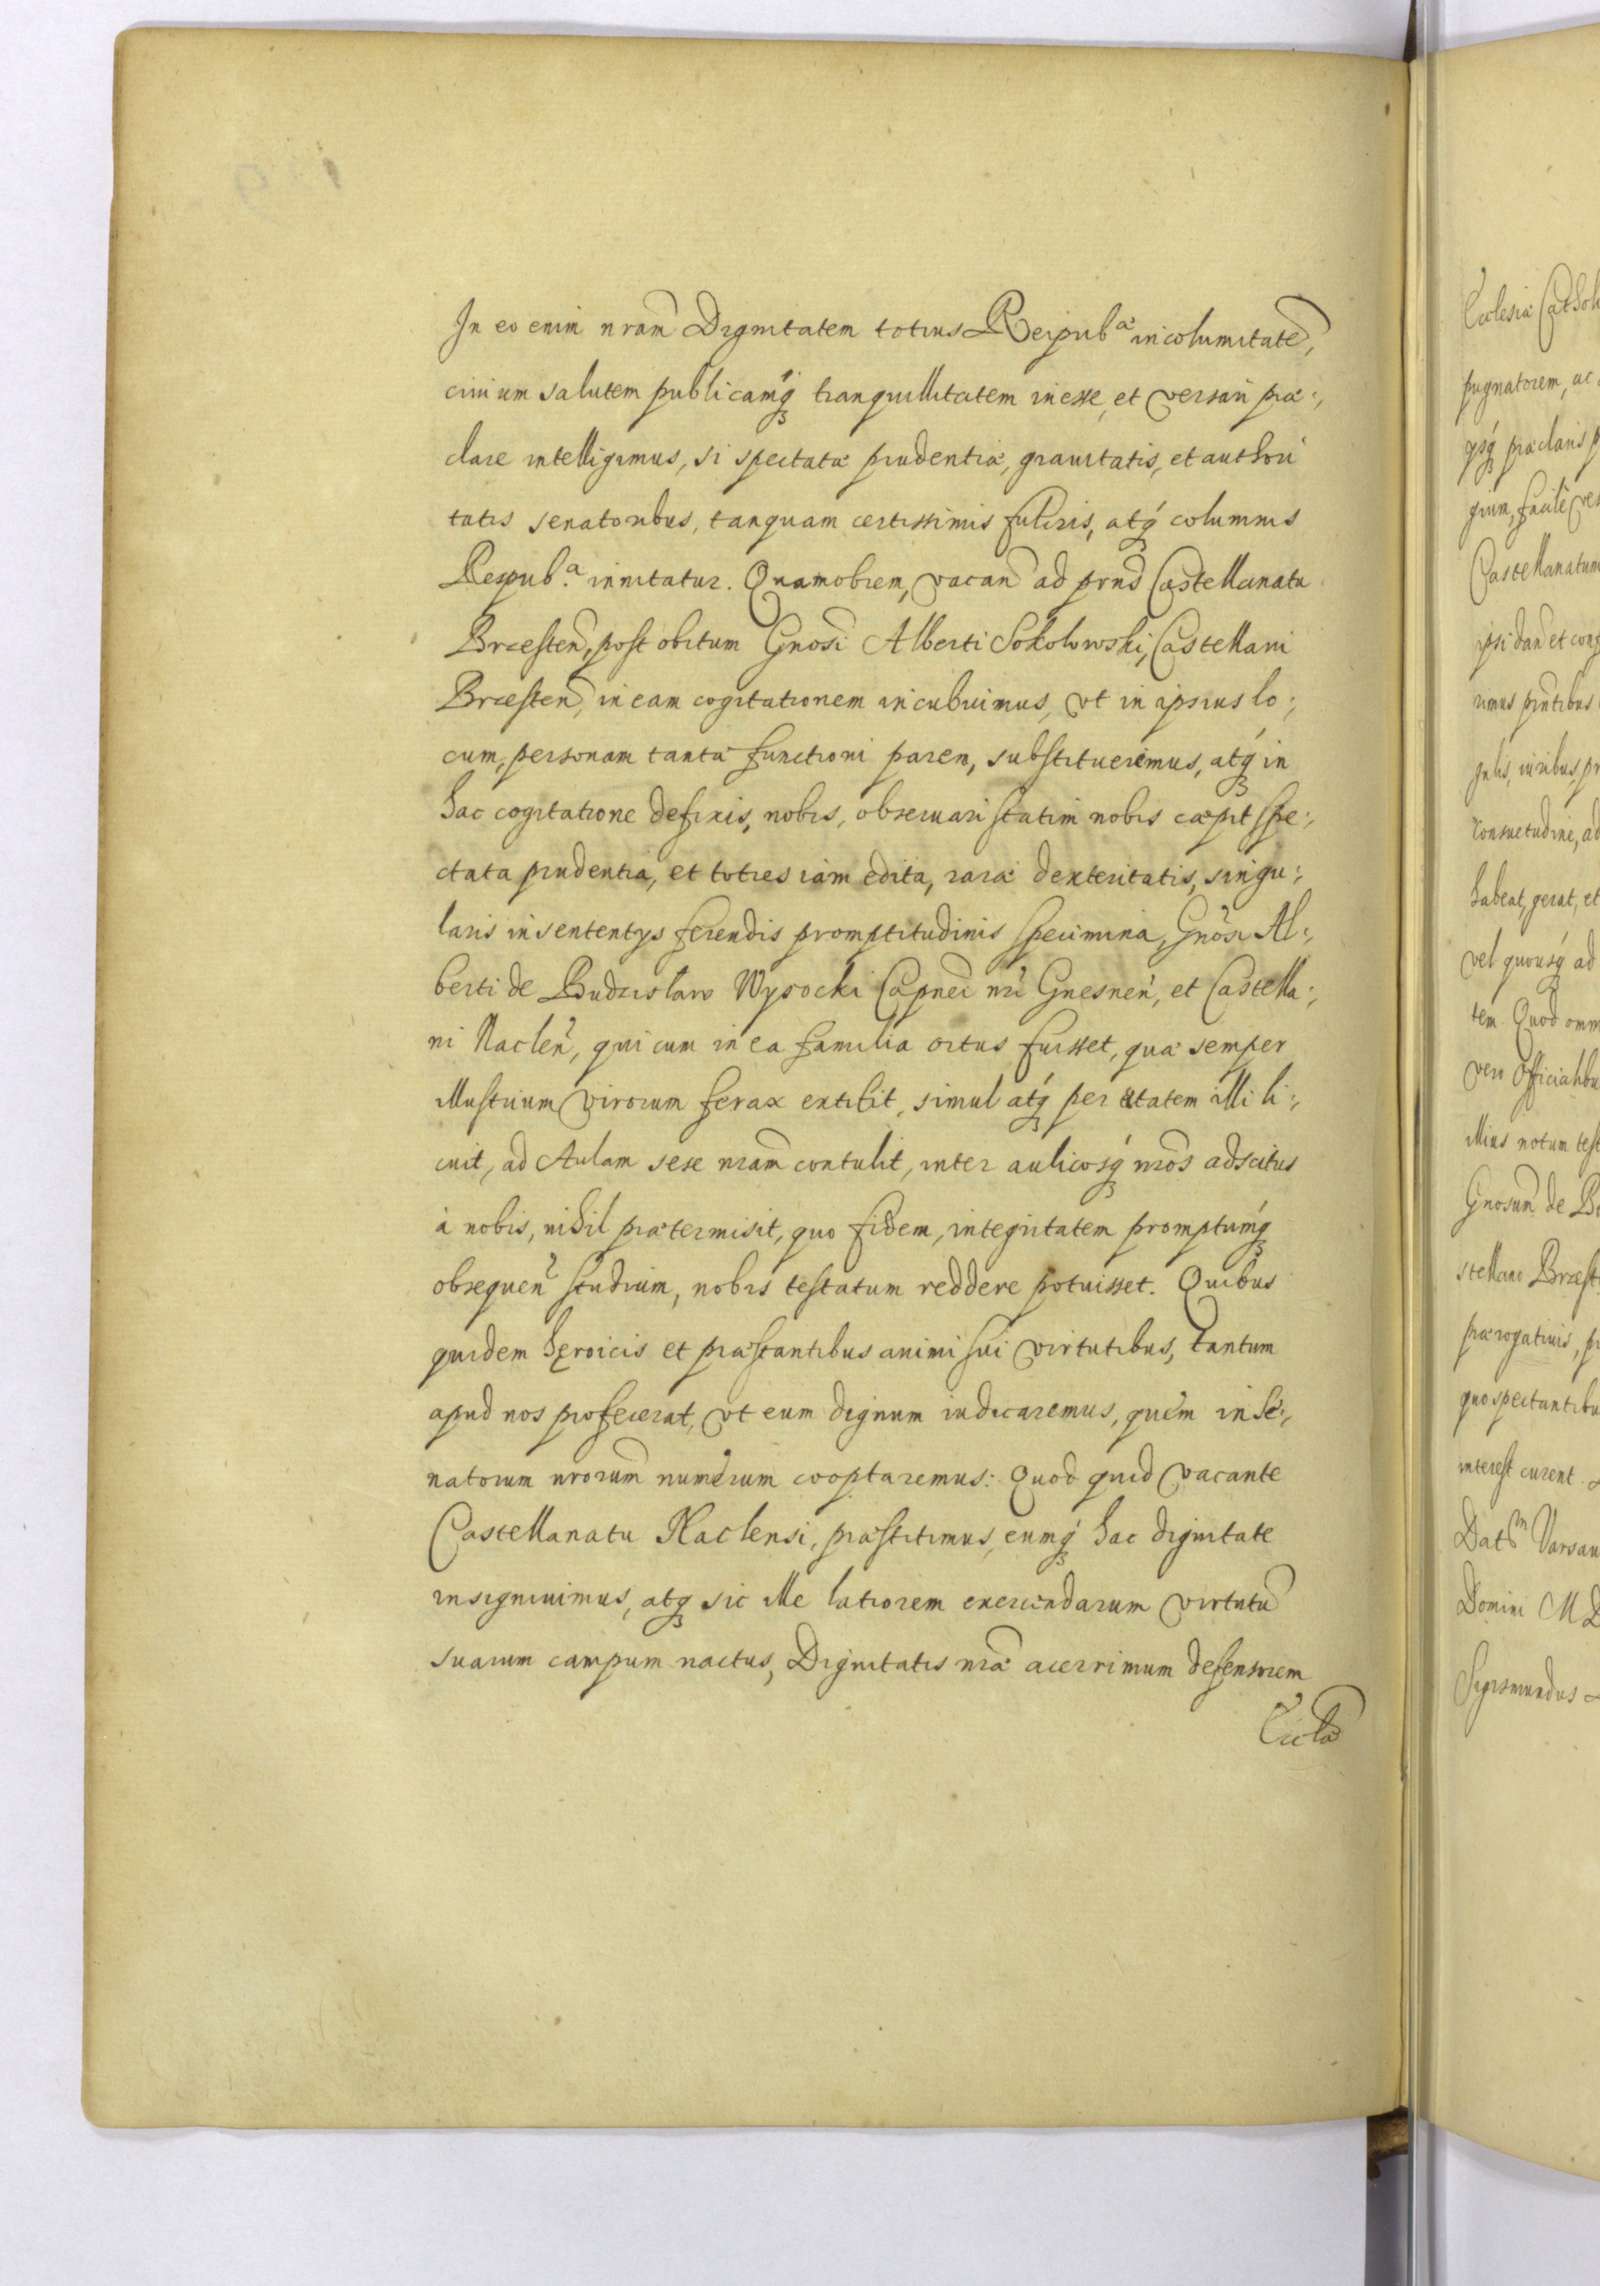 In eo enim nram Dignitatem totius Reipub.ae incolumitatẽ,
ciuium salutem publicamq́ꝫ tranquillitatem inesse, et versari præ:,
clare intelligimus, si spectatæ prudentiæ, grauitatis, et authori
tatis senatoribus, tanquam certissimis fulcris, atq́ꝫ columnis
Respub.ca innitatur. Quamobrem, vacañ ad prns̃ Castellanatu
Brzesteñ, post obitum Gnosi Alberti Sokolowski, Castellani
Brzesteñ, in eam cogitationem incubuimus, vt in ipsius lo:,
cum, personam tantæ functioni parem, substitueremus, atq́ꝫ in
hac cogitatione defixis, nobis, obseruari statim nobis cæpit spe:,
ctata prudentia, et toties iam edita, raræ dexteritatis, singu:,
laris in sententys ferendis promptitudinis specimina, Gnõsi Al:,
berti de Budzislaw Wysocki Capnei nrĩ Gnesneñ, et Castella:,
ni Nacleñ, qui cum in ea familia ortus fuisset, quæ semper
illustrium virorum ferax extitit, simul atq́ꝫ per ætatem illi li:,
cuit, ad Aulam sese nram̃ contulit, inter aulicosq́ꝫ nros̃ adscitus
à nobis, nihil prætermisit, quo fidem, integritatem promptumq́ꝫ
obsequeñ studium, nobis testatum reddere potuisset. Quibus
quidem heroicis et præstantibus animi sui virtutibus, tantum
apud nos profecerat, vt eum dignum iudicaremus, quem in Se:,
natorum nrorum̃ numerum cooptaremus: Quod quid vacante
Castellanatu Naclensi, præstitimus, eumq́ꝫ hac dignitate
insigniuimus, atqꝫ sic ille latiorem exercendarum virtutũ
suarum campum nactus, Dignitatis nræ acerrimum defensorem
Eccla͂
Ecclesiæ
pugnatorem, ac
præclaris
facile
Castellanatum
ipsi dañ et
rimus
iuribus
consuetudine, ad
habeat, gerat, et
vel quousq́ꝫ ad
tem. Quod
vero Officialibus
illius notum
Gnosum de
stellano
prærogatiuis,
quo spectantibus
interest curent.
Datm
Domini M D
Sigismundus